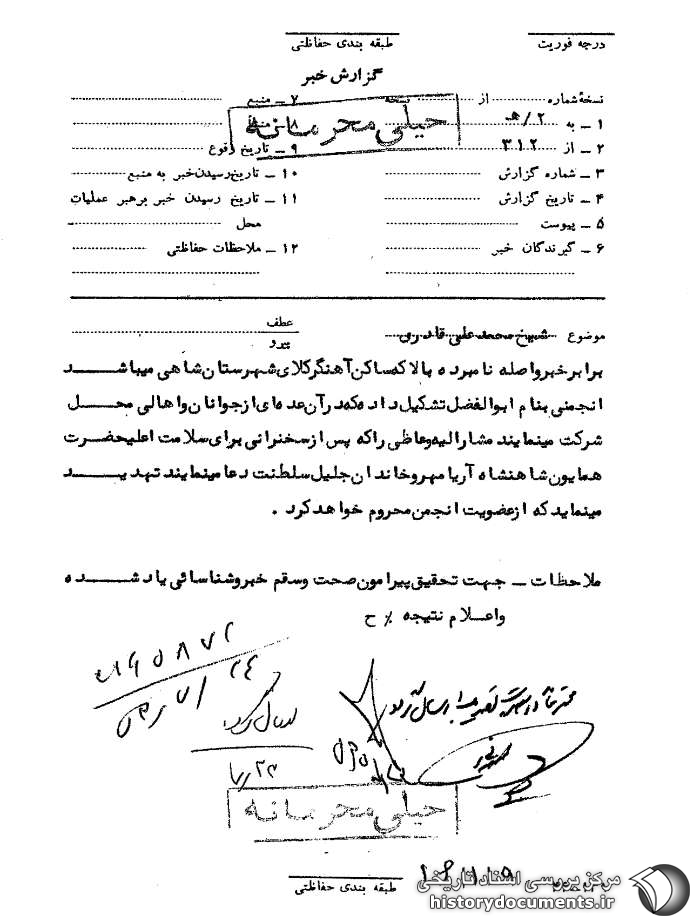 درجه فوریت
طبقه بندی حفاظتی
گزارش خبر
نسخهٔ شماره از نسخه
۱ ـ به ۲/هـ
۲ ـ از ۳۱۲
۳ ـ شماره گزارش
۴ ـ تاریخ گزارش
۵ ـ پیوست
۶ ـ گیرندگان خبر
۷ ـ منبع
۸ ـ منشأ
۹ ـ تاریخ وقوع
۱۰ ـ تاریخ رسیدن خبر به منبع
۱۱ ـ تاریخ رسیدن خبر برهبر عملیات
محل
۱۲ ـ ملاحظات حفاظتی
خیلی محرمانه
موضوع شیخ محمد علی قادری
عطف
پیرو
برابر خبر واصله نامبرده بالا که ساکن آهنگر کلای شهرستان شاهی میباشد
انجمنی بنام ابوالفضل تشکیل داده که در آن عده ای از جوانان و اهالی محل
شرکت مینمایند مشارالیه وعاظی را که پس از سخنرانی برای سلامت اعلیحضرت
همایون شاهنشاه آریامهر و خاندان جلیل سلطنت دعا مینمایند تهدید
مینماید که از عضویت انجمن محروم خواهد کرد .
ملاحظات ـ جهت تحقیق پیرامون صحت و سقم خبر و شناسائی یاد شده
و اعلام نتیجه ٪ ح
ارسال گردد
خیلی محرمانه
طبقه بندی حفاظتی
مرکز بررسی اسناد تاریخی
historydocuments.ir